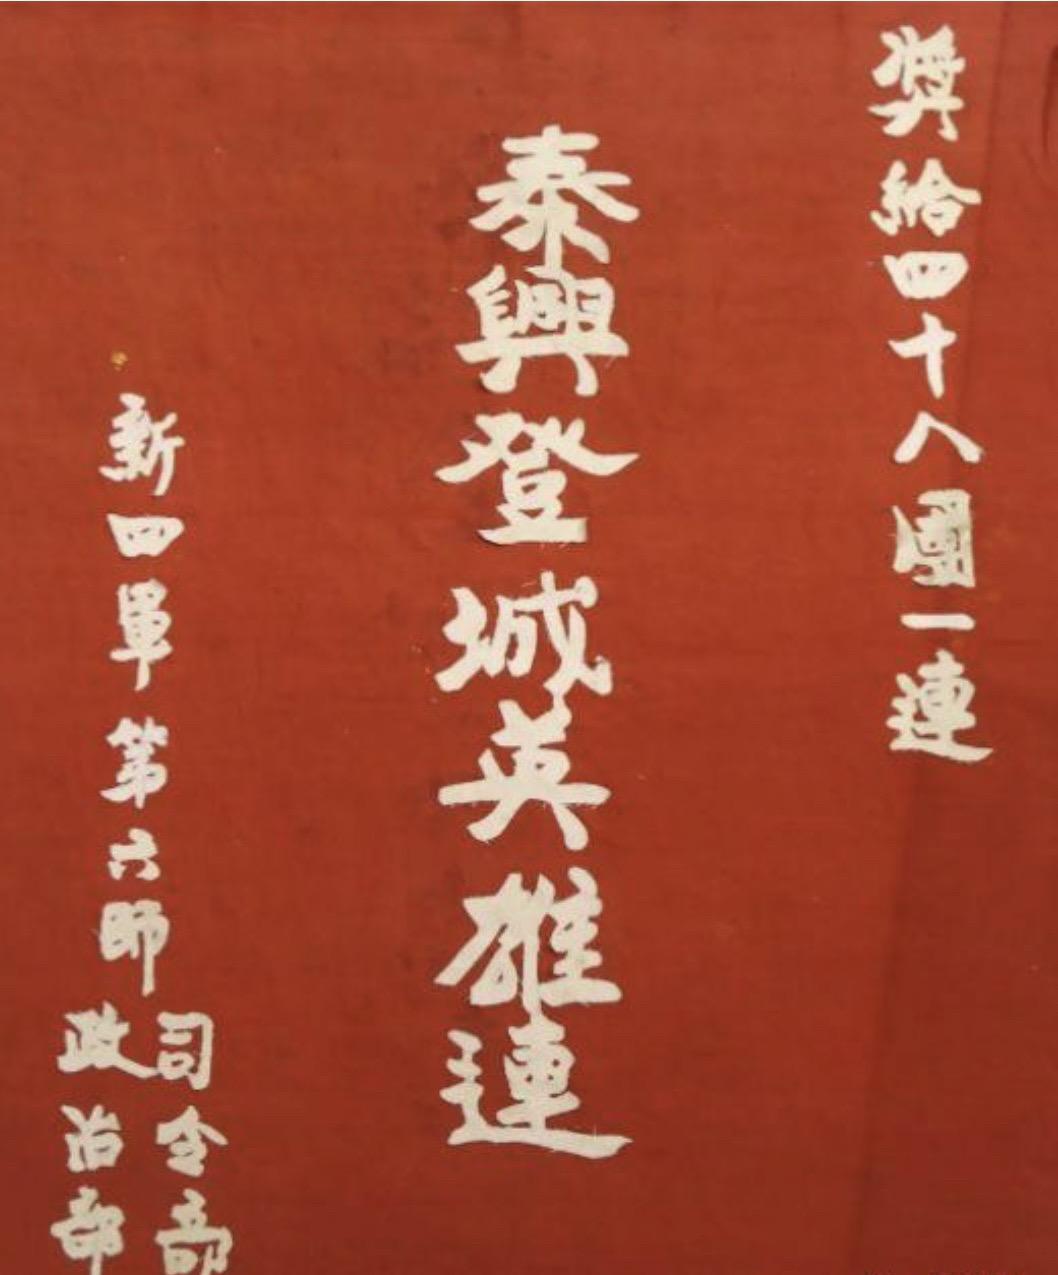 獎給四十八團一連
泰興登城英雄連
新四軍第六師
司令部
政治部